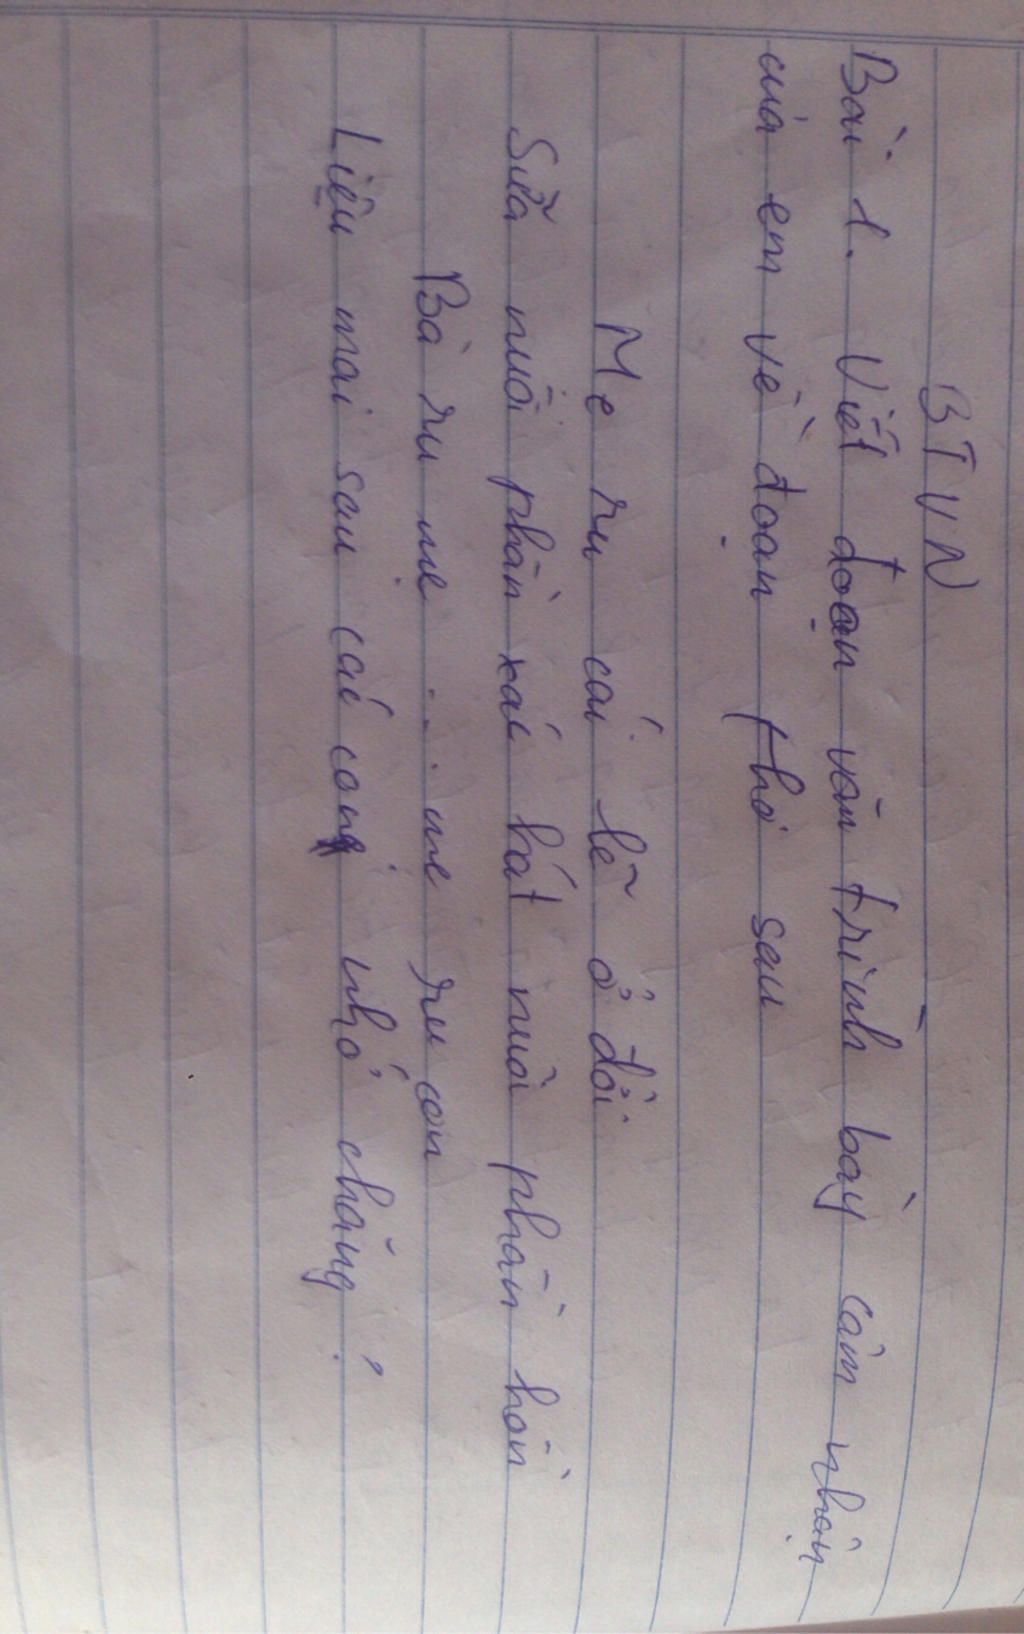 BTVN
Bài 1. Viết đoạn văn trình bày cảm nhận
của em về đoạn thơ sau
Mẹ ru cái lẽ ở đời
Sữa nuôi phần xác hát nuôi phần hồn
Bà ru mẹ ... mẹ ru con
Liệu mai sau các con nhớ chăng?